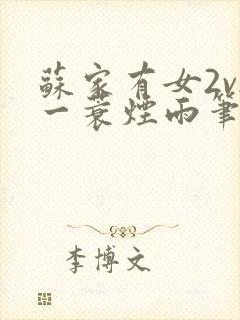 蘇家有女2v
一蓑煙雨筆
李博文